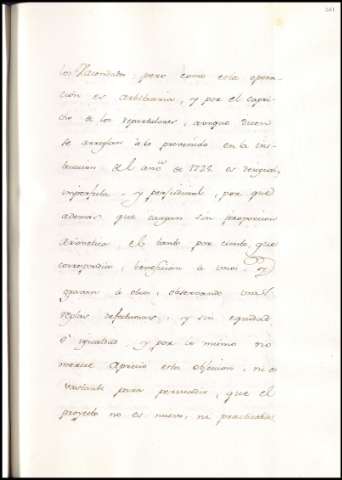 los Hacendados pero como esta opera-
cion es arbitraria, y por el capri-
cho de los repartidores, aunque dicen
se arreglan à lo prevenido en la Ins-
truccion del año de 1725 es desigual,
imperfecta y perjudicial, por que
ademas que cargan sin proporcion
aritmetica, el tanto por ciento, que
corresponde, benefician à unos, y
gravan à otros, observando unas
reglas defectuosas, y sin equidad
ò igualdad, y por lo mismo no
merece aprecio esta objecion, ni es
bastante para persuadir, que el
proyecto no es nuevo, ni practicable